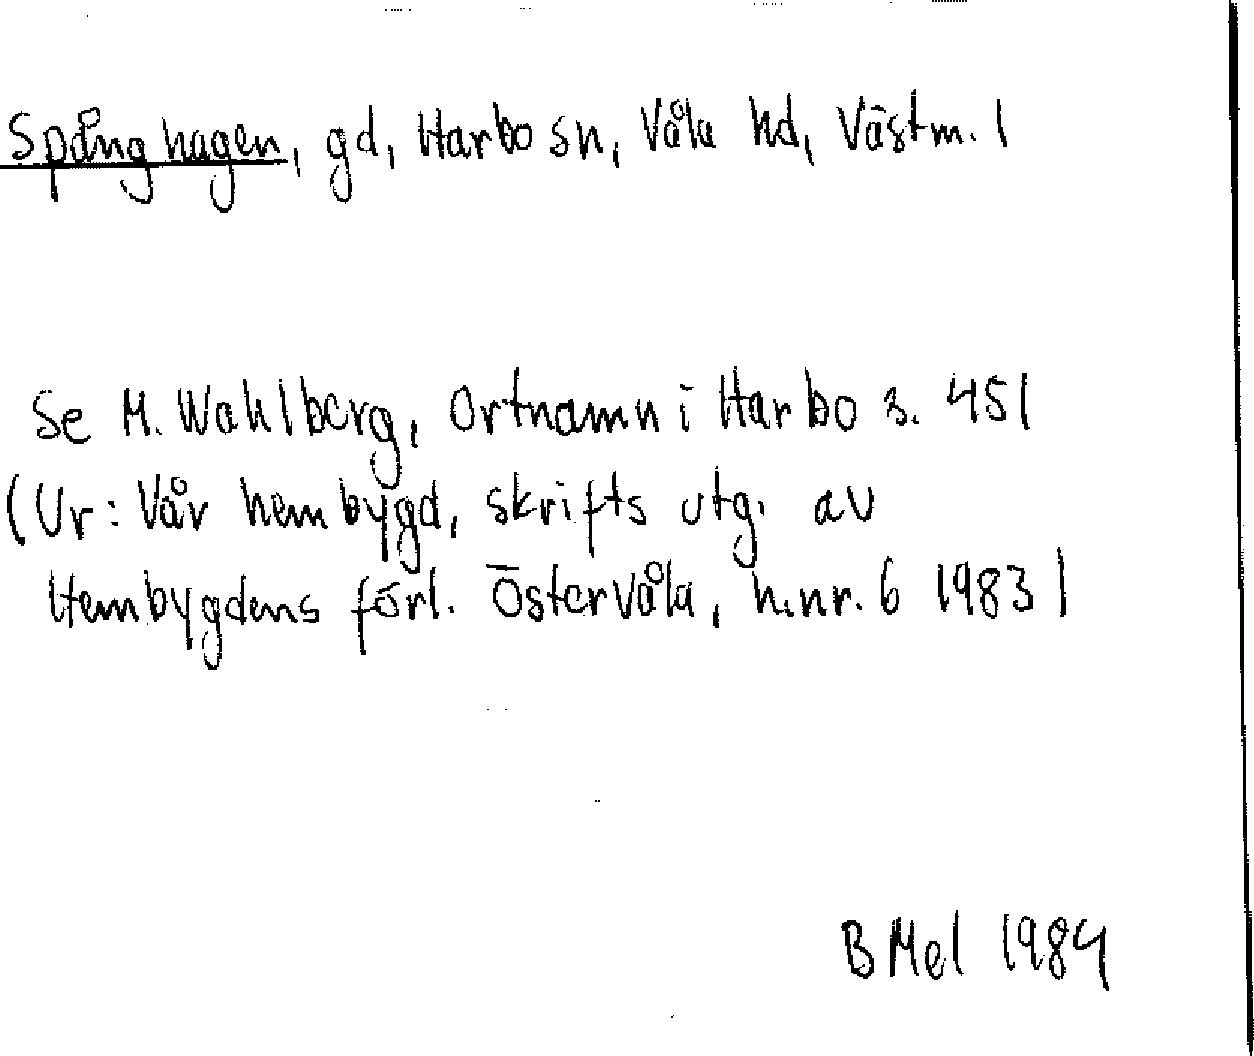 Spånghagen, gd, Harbo sn, Våla hd, Västm. l
Se M. Wahlberg, Ortnamn i Harbo s. 451
(Ur: Vår hembygd, skrifts utg. av
Hembygdens förl. Östervåla, h.nr. 6 1983)
B Mel 1984